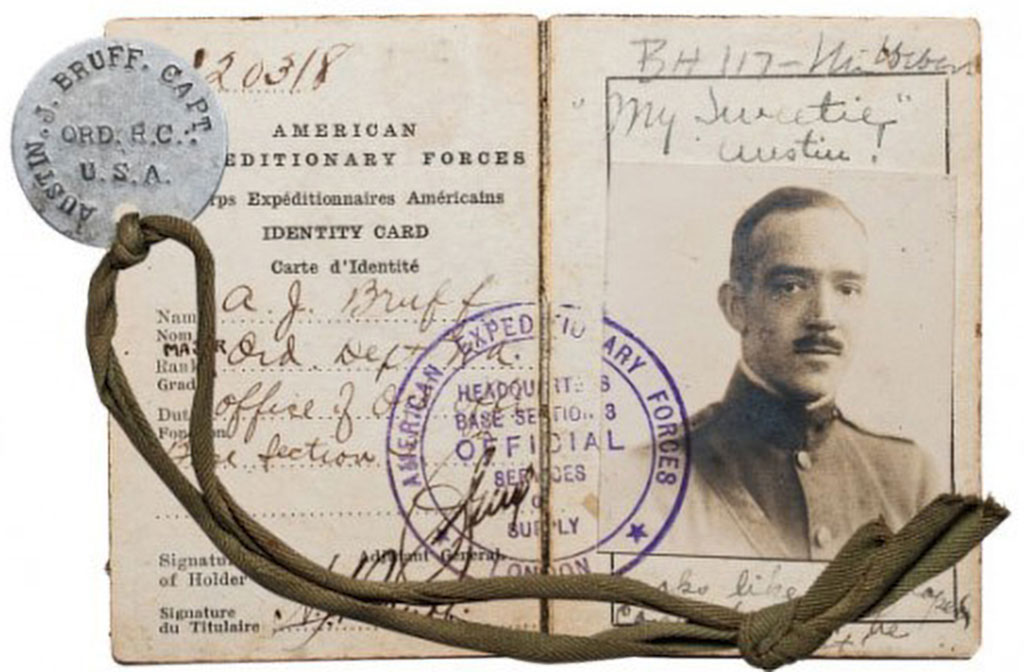 AUSTIN. J. BRUFF. CAPT.
ORD. R.C.
U.S.A.
20318
AMERICAN
EDITIONARY FORCES
rps Expéditionnaires Américains
IDENTITY CARD
Carte d'Identité
Nam A. J. Bruff
Nom
MAJOR Ord Dept
Rank
Grad
Dut Office of
Fon
Base Section
Signatu
of Holder
Adjutant General.
Signature
du Titulaire
AMERICAN EXPEDITIONARY FORCES
HEADQUARTERS
BASE SECTION 3
OFFICIAL
SERVICES
OF
SUPPLY
LONDON
BH 117-
"My Sweetie"
Austin.
like